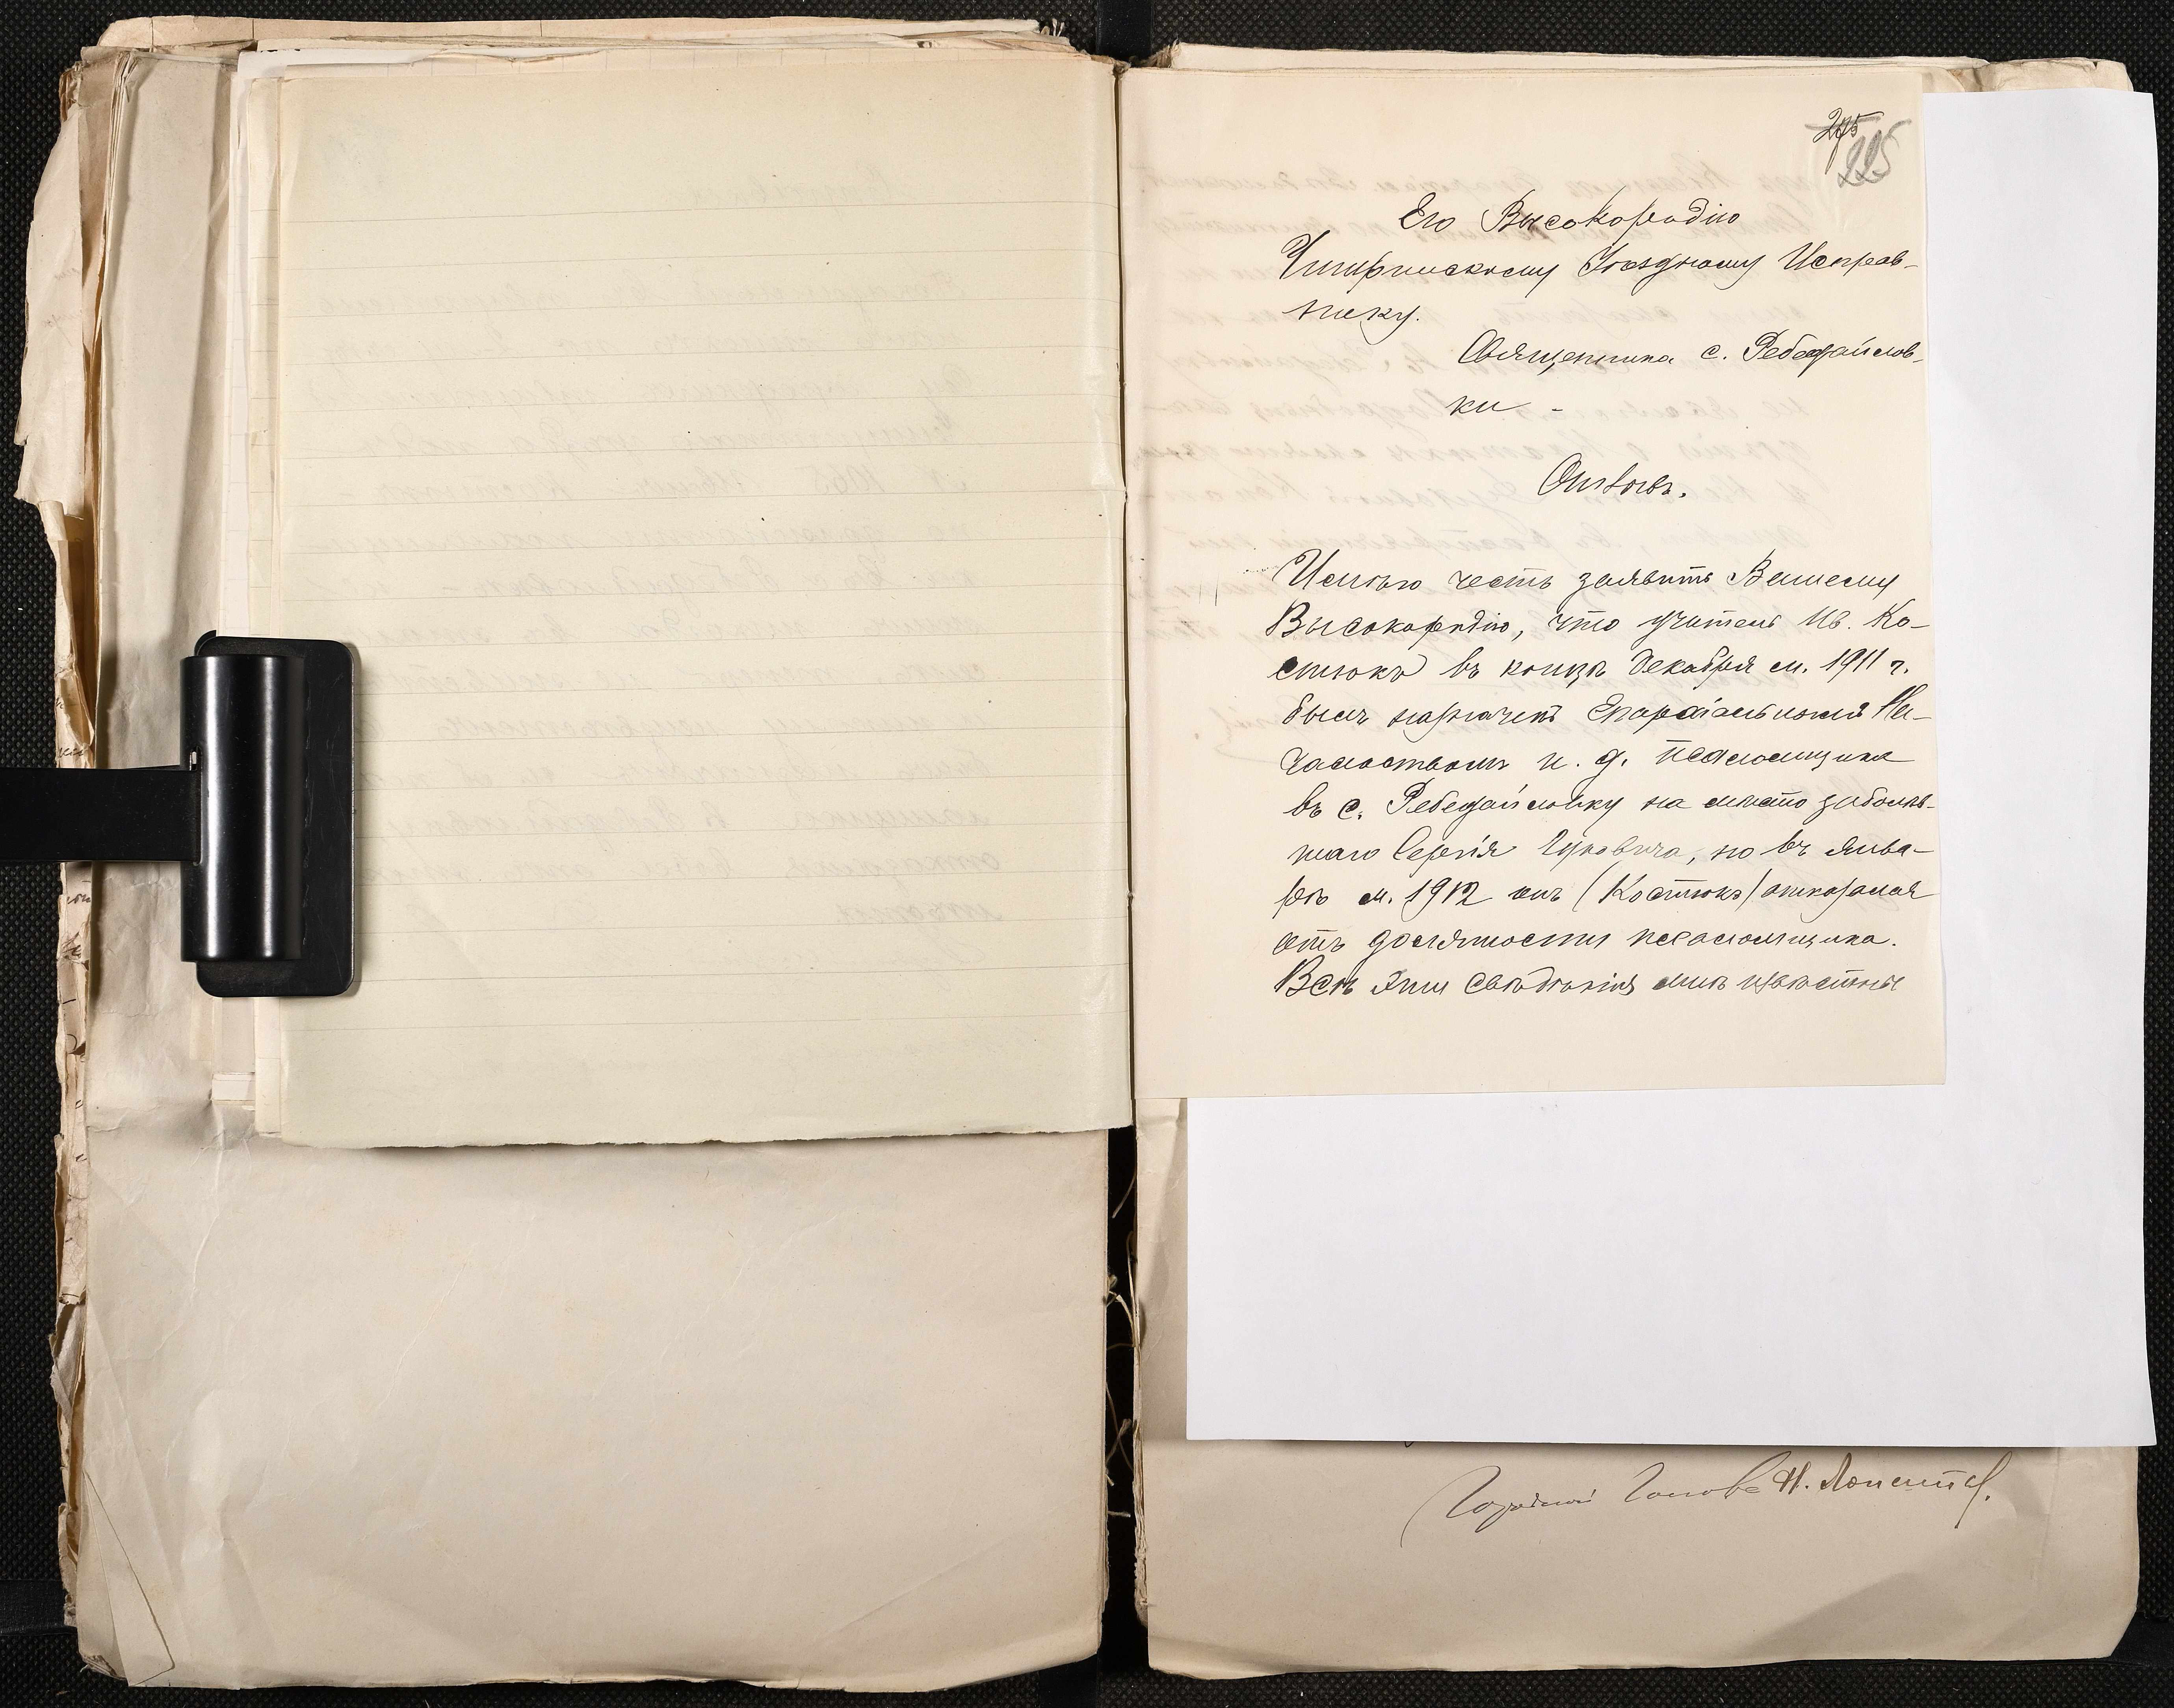 275
225
Его Высокородію
Чигиринскому Уѣздному Исправ-
нику.
Священника с. Ребедайлов-
ки -
Отзывъ.
Имѣю честь заявить Вашему
Высокородію, что учитель Ив. Ко-
стюкъ въ концѣ Декабря м. 1911 г.
былъ назначенъ Епархіальнымъ На-
чальствомъ и. д. псаломщика
въ с. Ребедайловку на мѣсто заболѣв-
шаго Сергія, но въ Янва-
рѣ м. 1912 онъ (Костюкъ) отказался
отъ должности псаломщика.
Всѣ эти свѣдѣнія мнѣ извѣстны
Городской Голова Н.